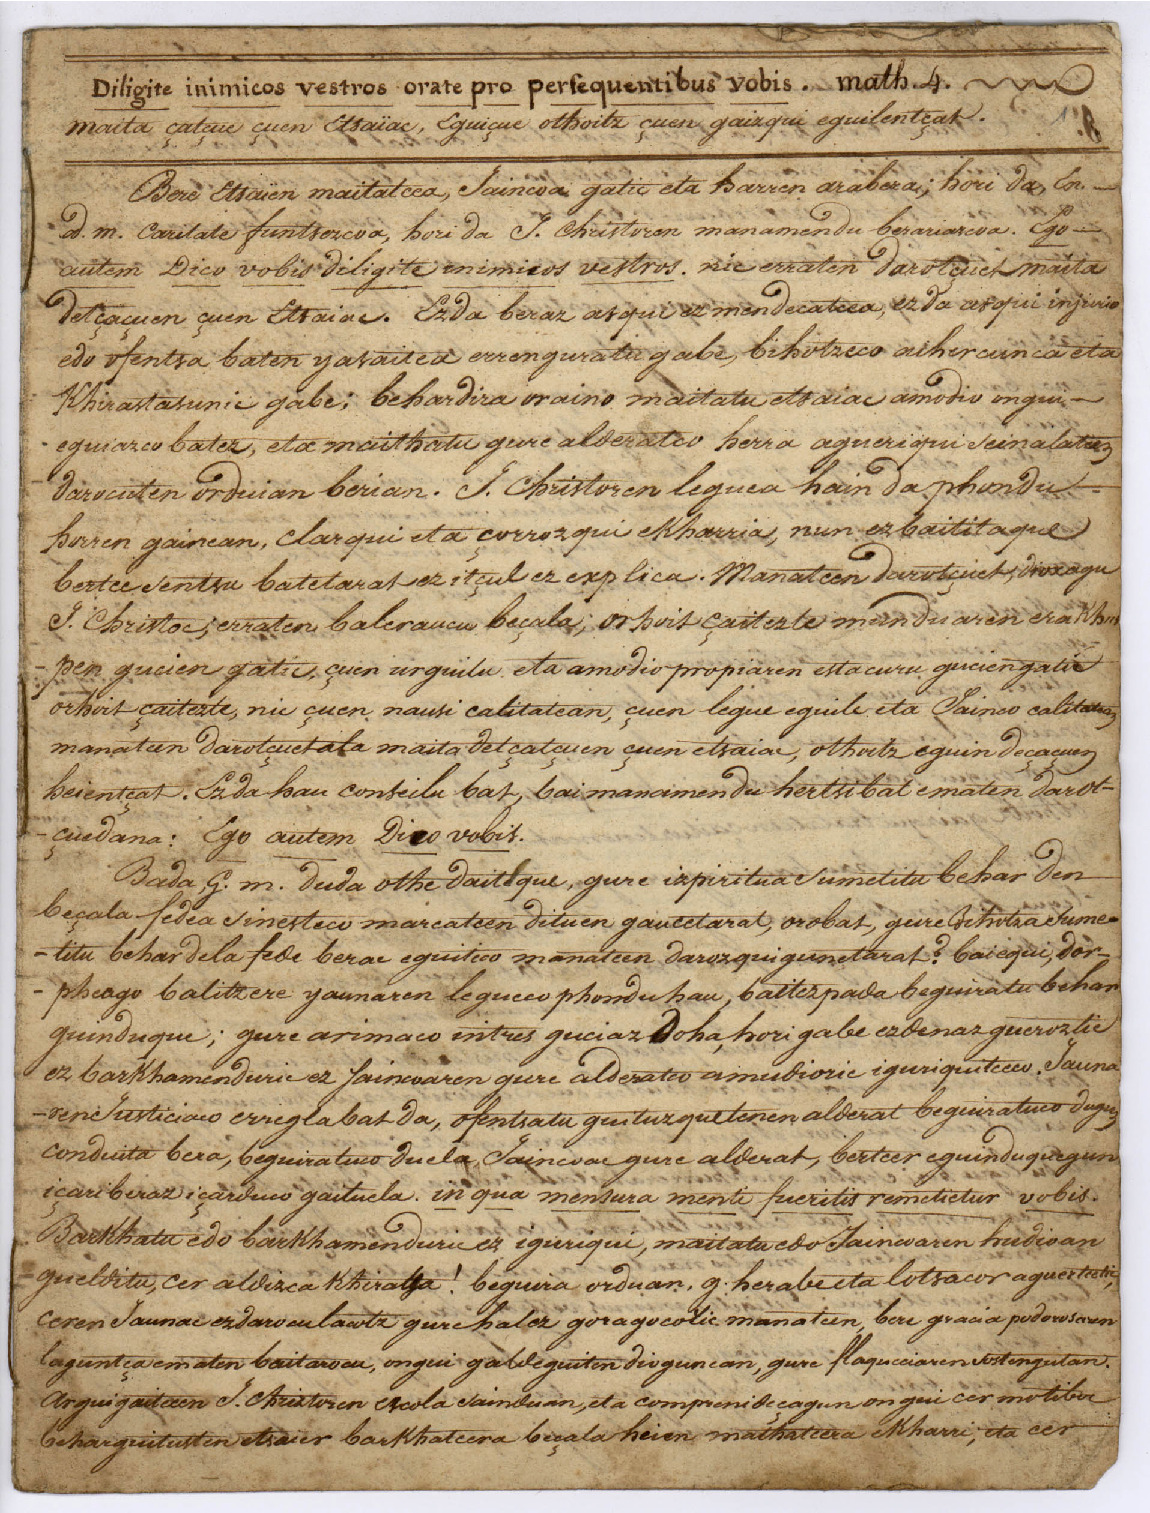 Diligite inimicos vestros orate pro persequentibus vobis. math. 4.
maita çatçue çuen Etsaïac, Eguiçue othoitz çuen gaizqui eguilentçat.
Bere Etsaien maitatcea, Jaincoa gatic eta harren arabera; hori da, En
ad. m. Caritate funtsezcoa, hori da J. Christoren manamendu berariazcoa. Ego
autem Dico vobis diligite inimicos vestros. nic erraten darotçuet maita
detçaçuen çuen Etsaiac. Ezda beraz asqui ez mendecatcea, ezda asqui injurio
edo ofentsa baten yasaitea errenguratu gabe, bihotzeco aihercunca eta
Khirastasunic gabe; behardira oraino maitatu etsaiac amodio ongui
eguiazco batez, eta maithatu gure alderatco herra agueriqui seinalatcen
darocuten orduian berian. J. Christoren leguea hain da phondu
horren gainean, clarqui eta çorrozqui ekharria, nun ezbaititaque
bertce sentsu batetarat ez itçul ez explica. Manatcen darotçuet, dioxagu
J. Christoc; erraten baleraucu beçala; orhoit çaitezte munduaren erakhus
pen gucien gatic, çuen urguilu eta amodio propiaren estacuru guciengatic
orhoit çaitezte, nic çuen nausi calitatean, çuen legue eguile eta Jainco calitatean
manatcen darotçuetala maita detçatçuen çuen etsaiac, othoitz eguin deçaçuen
heientçat. Ezda hau conseilu bat, bai manamendu hertsi bat ematen darot-
çuedana: Ego autem Dico vobis.
Bada, G. m. duda othe daiteque, gure izpiritua sumetitu behar den
beçala fedea sinesteco marcatcen dituen gaucetarat, orobat, gure bihotza sume-
titu behar dela fede berac eguiteco manatcen darozquigunetarat? baiequi, dor-
pheago balitzere yaunaren legueco phondu hau, baitezpada beguiratu behar
guinduque; gure arimaco intres guciaz doha, hori gabe ezdenaz gueroztic
ez barkhamenduric ez Jaincoaren gure alderatco amudioric iguriquitceco. Jauna
renc Justiciaco erregla bat da, ofentsatu guituzquetenen alderat beguiratuco dugun
conduita bera, beguiratuco duela Jaincoac gure alderat, bertcer eguinduquegun
içari beraz içarduco gaituela. in qua mensura menti fueritis remetietur vobis.
Barkhatu edo barkhamenduric ez iguriqui, maitatu edo Jaincoaren hudioan
gueldítu, cer aldizca Khiratsa! beguira orduan, g. herabe eta lotsacor aguertcetic,
ceren Jaunac ezdarocu lacotz gure halez goragocoric manatcen, bere gracia podorosaren
laguntça ematen baitarocu, ongui galdeguiten diogunean, gure flaqueciaren sostengutan.
Argui gaitecen J. Christoren escola sainduan, eta comprenideçagun ongui cer motiboc
behar guituzten etsaier barkhatcera beçala heien maithatcera ekharri; eta cer